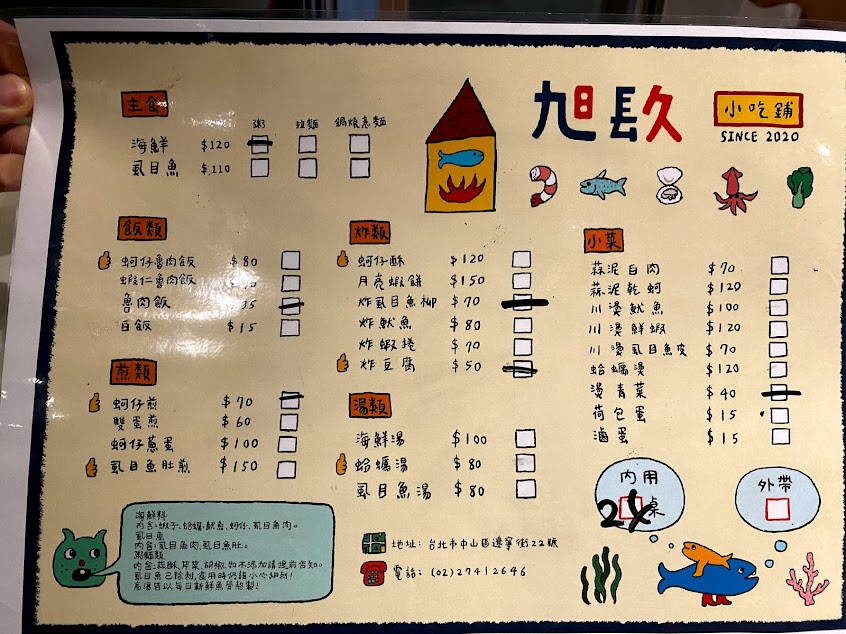 旭 镹
小吃舖
SINCE 2020
主食
粥 拉麵 鍋燒意麵
海鮮 $120
虱目魚 $110
飯類
蚵仔魯肉飯 $80
蝦仁魯肉飯
魯肉飯 35
白飯 $15
煎類
蚵仔煎 $70
雙蛋煎 $60
蚵仔蔥蛋 $100
虱目魚肚煎 $150
炸類
蚵仔酥 $120
月亮蝦餅 $150
炸虱目魚柳 $70
炸魷魚 $80
炸蝦捲 $70
炸豆腐 $50
湯類
海鮮湯 $100
蛤蠣湯 $80
虱目魚湯 $80
小菜
蒜泥白肉 $70
蒜泥乾蚵 $120
川燙魷魚 $100
川燙鮮蝦 $120
川燙虱目魚皮 $70
蛤蠣燙 $120
燙青菜 $40
荷包蛋 $15
滷蛋 $15
海鮮料
內含:蝦子、蛤蠣、魷魚、蚵仔、虱目魚肉。
虱目魚
內含:虱目魚肉、虱目魚肚。
粥麵類
內含:蒜酥、芹菜、胡椒,如不添加請提前告知。
虱目魚已除刺,食用時仍請小心細刺!
地址: 台北市中山區遼寧街22號
電話: (02)27412646
內用
桌
外帶